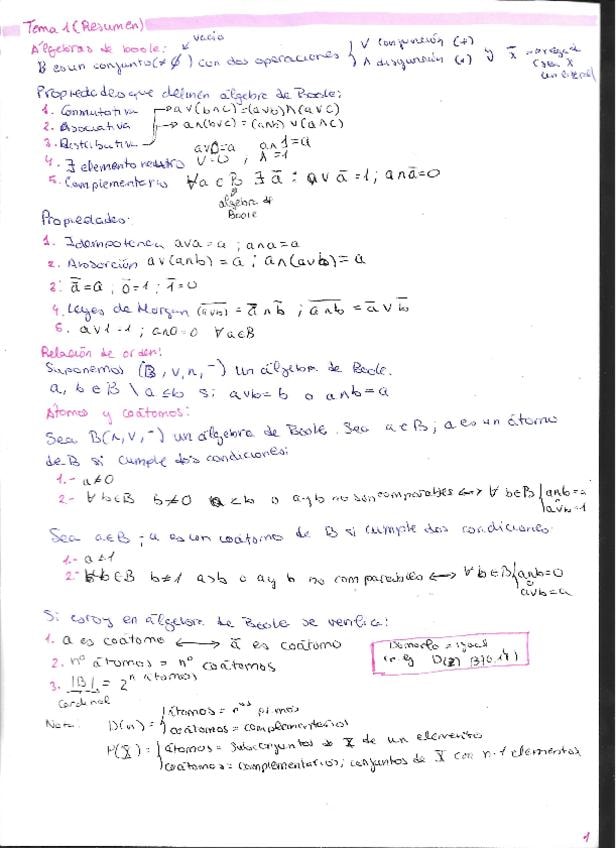 Tema 1 (Resumen)
Álgebras de boole:
vacío
B es un conjunto (≠ ∅) con dos operaciones { ∨ conjunción (+)
∧ disyunción (·) y x̄
Propiedades que definen álgebra de Boole:
1. Conmutativa
a∨(b∧c)=(a∨b)∧(a∨c)
2. Asociativa
a∧(b∨c)=(a∧b)∨(a∧c)
3. Distributiva
a∨0=a a∧1=a
4. ∃ elemento neutro ∨=0, ∧=1
5. Complementario ∀a ∈ B ∃ ā : a∨ā=1; a∧ā=0
álgebra de
Boole
Propiedades:
1. Idempotencia a∨a=a ; a∧a=a
2. Absorción a∨(a∧b)=a ; a∧(a∨b)=a
3. a̿=a ; 0̄=1 ; 1̄=0
4. Leyes de Morgan (a∨b)‾ = ā∧b̄ ; (a∧b)‾ = ā∨b̄
5. a∨1=1 ; a∧0=0 ∀a∈B
Relación de orden:
Suponemos (B,∨,∧,‾) un álgebra de Boole.
a, b ∈ B \ a≤b si a∨b=b o a∧b=a
Átomos y coátomos:
Sea B(∧,∨,‾) un álgebra de Boole. Sea a∈B; a es un átomo
de B si cumple dos condiciones:
1.- a≠0
2.- ∀b∈B b≠0 a<b o a y b no son comparables ⟷ ∀ b∈B { a∧b=
a∨b=1
Sea a∈B ; a es un coátomo de B si cumple dos condiciones:
1.- a≠1
2- ∀b∈B b≠1 a>b o a y b no comparables ⟷ ∀ b∈B { a∧b=0
a∨b=a
Si estoy en álgebra de Boole se verifica:
1. a es coátomo ⟷ ā es coátomo
2. nº átomos = nº coátomos
3. |B| = 2^nº átomos
Cardinal
Nota: D(n) = { átomos = nºs primos
coátomos = complementarios
P(X) = { átomos = subconjuntos de X de un elemento
coátomos = complementarios; conjuntos de X con n-1 elementos
1